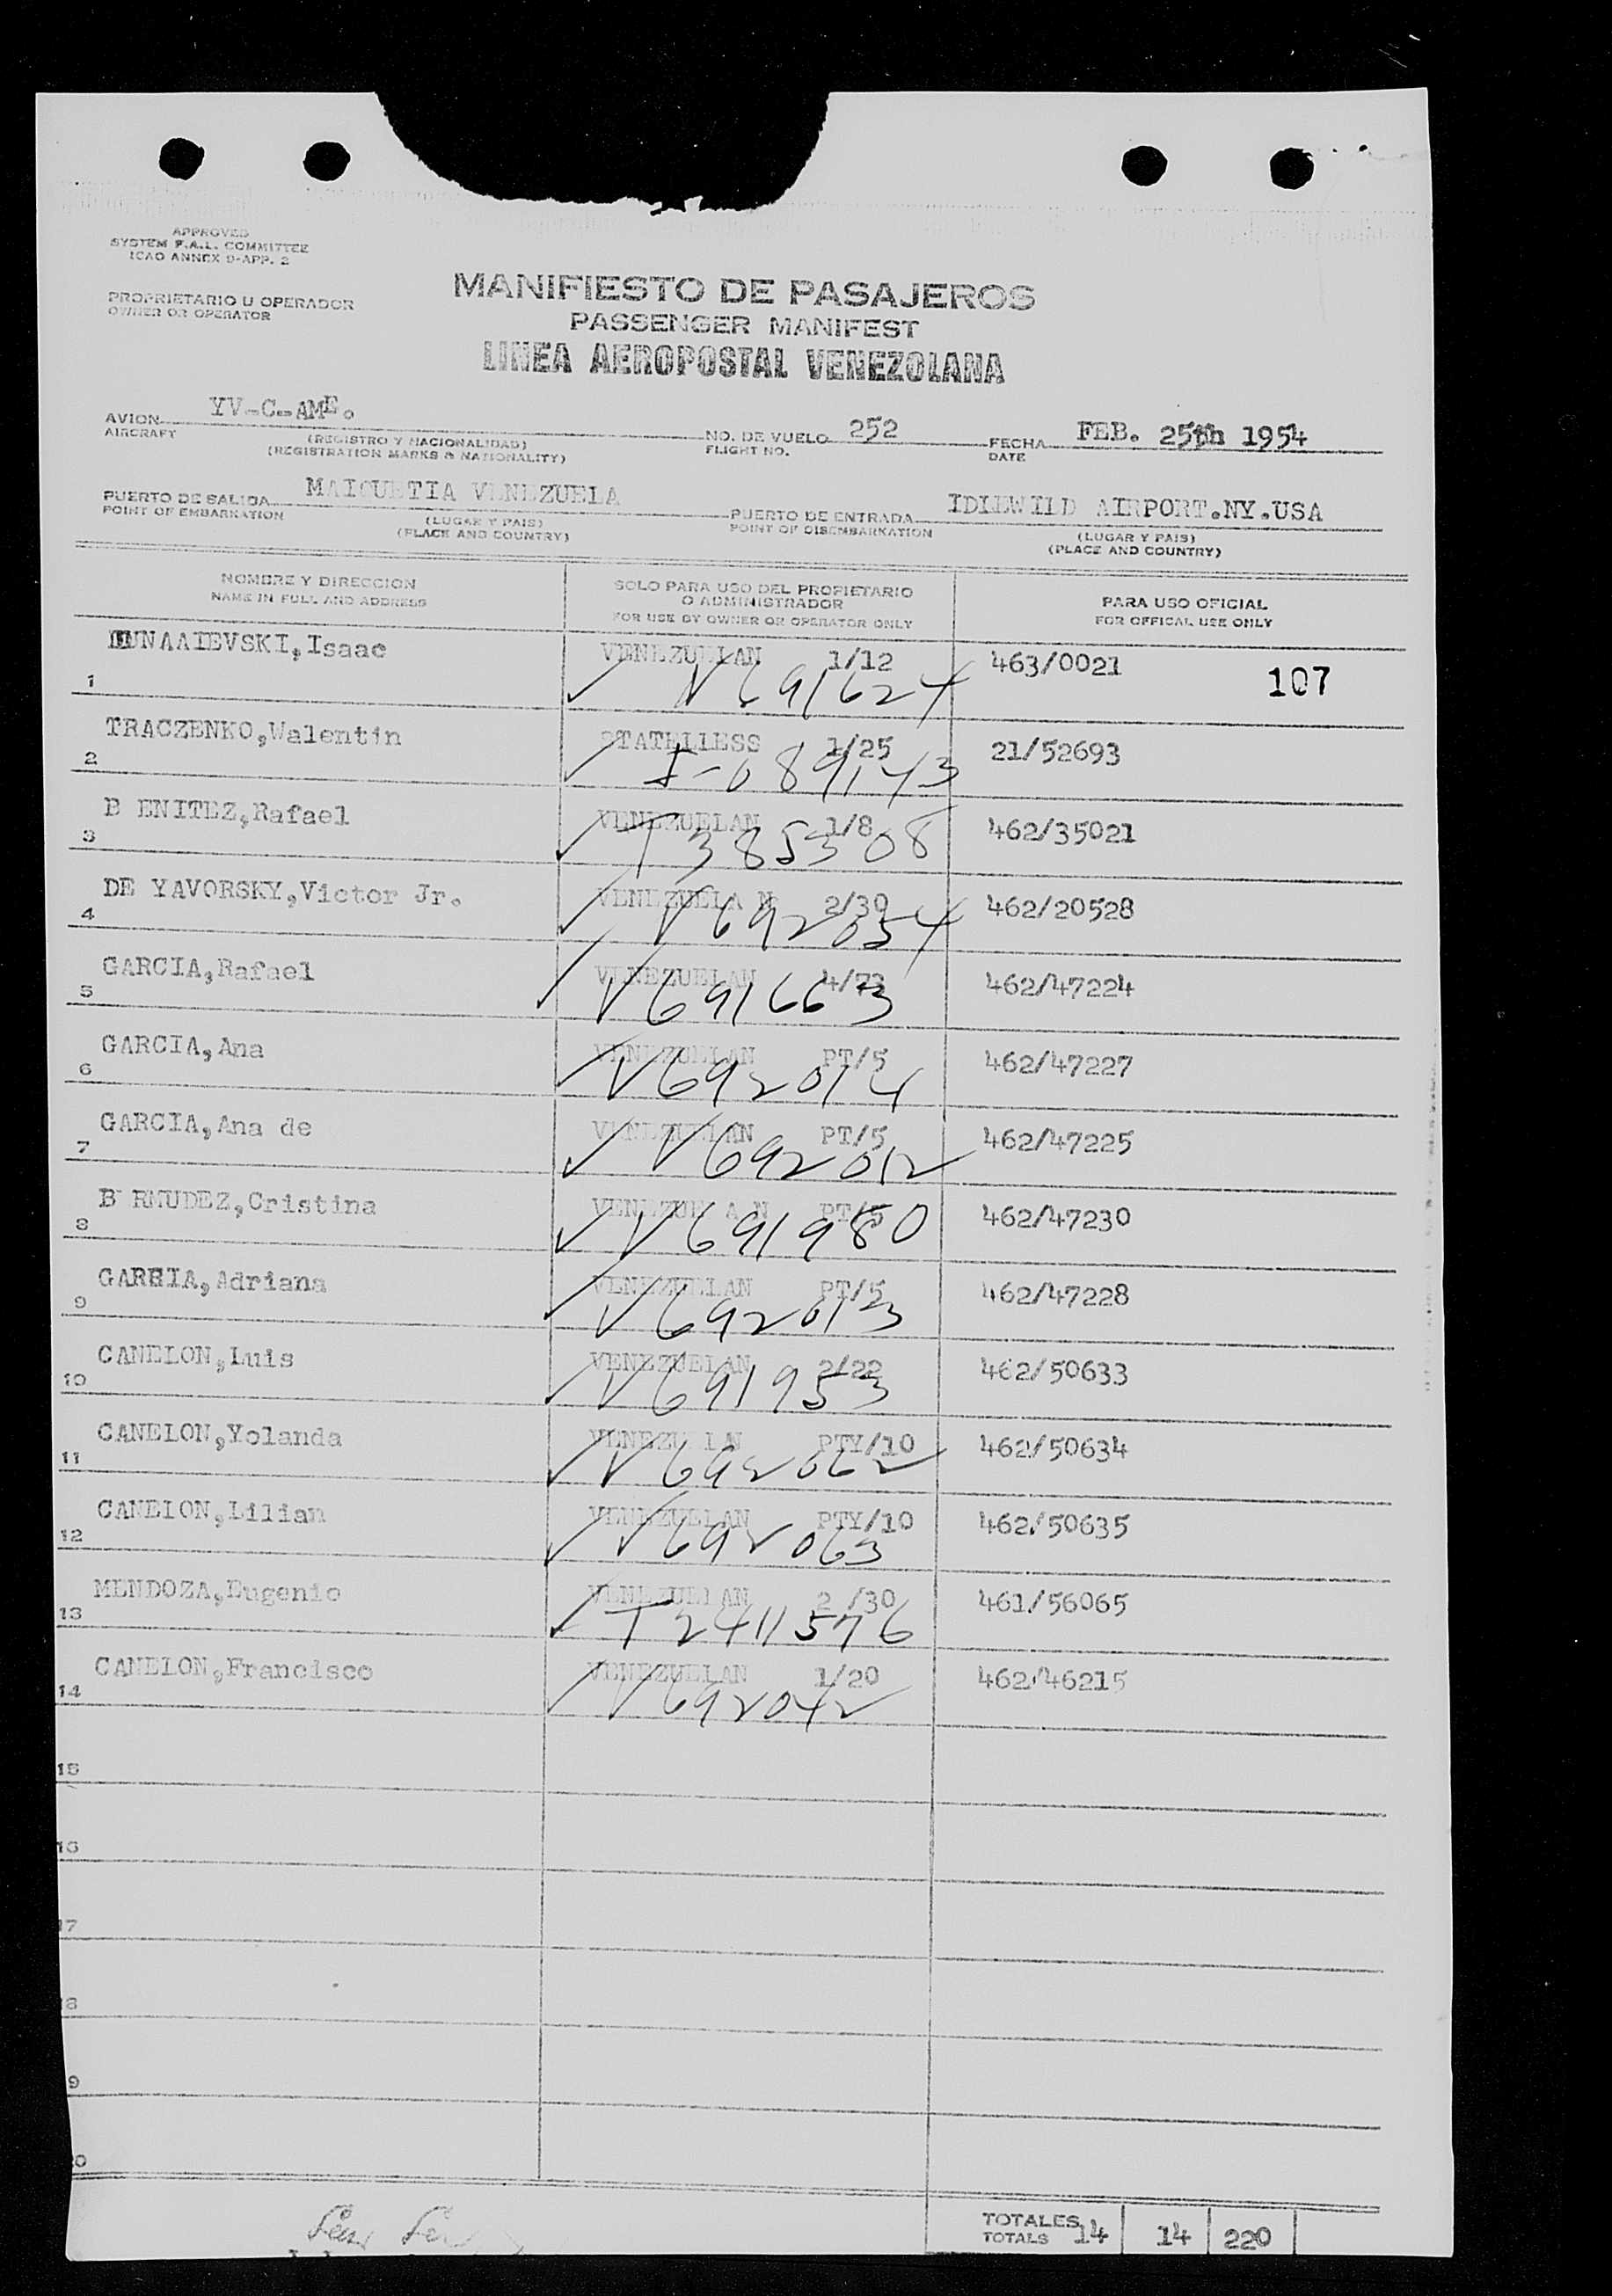 APPROVED
SYSTEM F.A.L. COMMITTEE
ICAO ANNEX 9-APP. 2
PROPRIETARIO U OPERADOR
OWNER OR OPERATOR
MANIFIESTO DE PASAJEROS
PASSENGER MANIFEST
LINEA AEROPOSTAL VENEZOLANA
AVION YV-C-AME. NO. DE VUELO 252 FECHA FEB. 25th 1954
AIRCRAFT (REGISTRO Y NACIONALIDAD) FLIGHT NO. DATE
(REGISTRATION MARKS & NATIONALITY)
PUERTO DE SALIDA MAIQUETIA VENEZUELA PUERTO DE ENTRADA IDLEWILD AIRPORT.NY.USA
POINT OF EMBARKATION (LUGAR Y PAIS) POINT OF DISEMBARKATION (LUGAR Y PAIS)
(PLACE AND COUNTRY) (PLACE AND COUNTRY)
NOMBRE Y DIRECCION SOLO PARA USO DEL PROPIETARIO O ADMINISTRADOR PARA USO OFICIAL
NAME IN FULL AND ADDRESS FOR USE BY OWNER OR OPERATOR ONLY FOR OFFICAL USE ONLY
1 Isaac VENEZUELAN 1/12 463/0021 107
V691624
2 TRACZENKO,Walentin STATELLESS 1/25 21/52693
I-089143
3 B ENITEZ,Rafael VENEZUELAN 1/8 462/35021
T385308
4 DE YAVORSKY,Victor Jr. VENEZUELA N 2/30 462/20528
V692054
5 GARCIA,Rafael VENEZUELAN 4/73 462/47224
V691663
6 GARCIA,Ana VENEZUELAN PT/5 462/47227
V692014
7 GARCIA,Ana de VENEZUELAN PT/5 462/47225
V692012
8 B RMUDEZ,Cristina VENEZUE A N PT/5 462/47230
V691980
9 GARCIA,Adriana VENEZUELAN PT/5 462/47228
V692013
10 CANELON,Luis VENEZUELAN 2/22 462/50633
V691953
11 CANELON,Yolanda VENEZUELAN PTY/10 462/50634
V692062
12 CANELON,Lilian VENEZUELAN PTY/10 462/50635
V692063
13 MENDOZA,Eugenio VENEZUELAN 2 /30 461/56065
T2411576
14 CANELON,Francisco VENEZUELAN 1/20 462/46215
V692042
15
16
17
18
19
20
TOTALES
TOTALS 14 14 220